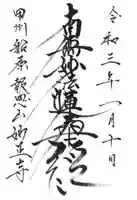 令和三年一月十日
南無妙法蓮華経
甲州 原 報恩山 妙寺